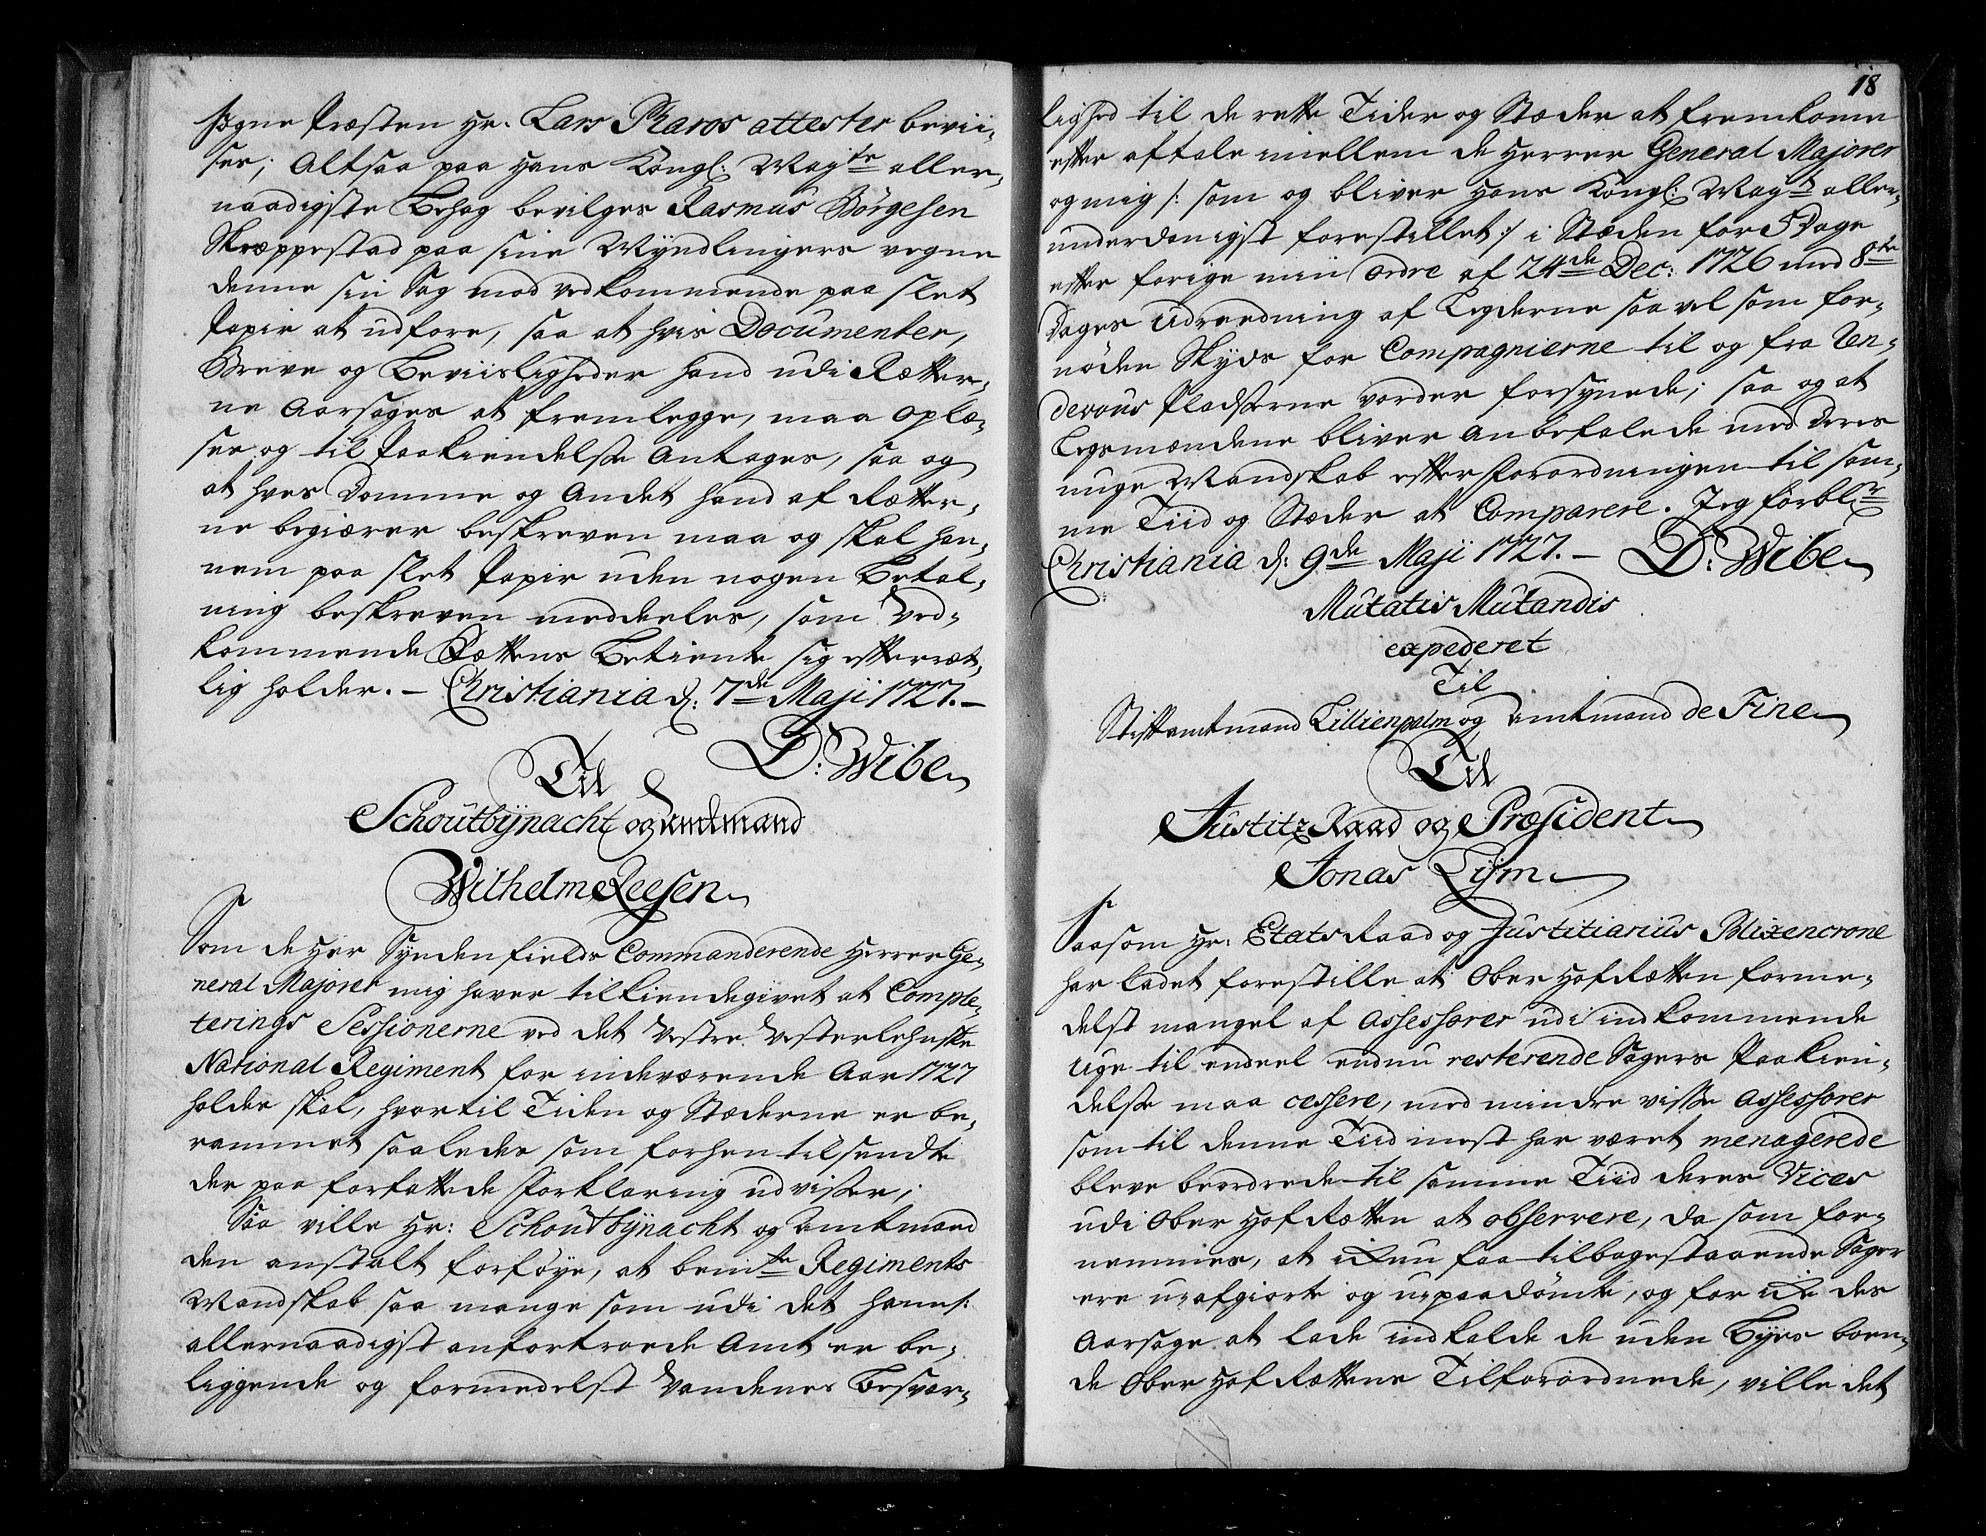 Sogne Præsten Hr. Lars Pharos attester bevii-
ser; Altsaa paa Hans Kongl: May:ts aller-
naadigste Behag bevilges Rasmus Börgesen
Skræppestad paa sine Myndlingers vegne
denne sin Sag mod vedkommende paa slet
Papir at udføre, saa at hvis Documenter,
Breve og Beviisligheder hand udi Rætter-
ne Aarsages at fremlegge, maa oplæ-
ses og til Paakiendelse Antages, saa og
at hves Domme og Andet hand af Rætter-
ne begiærer beskreven maa og skal han-
nem paa slet Papir uden nogen Betal-
ning beskreven meddeeles, som Ved-
kommende Rættens Betiente sig efterræt-
lig holder. – Christiania d: 7de Maji 1727. –
D: Wibe
Til
Schoutbÿnacht og Amtmand
Wilhelm Leesen
Som de Her Syndenfields Commanderende Herrer Ge-
neral Majorer mig haver tilkiendegivet at Comple-
terings Sessionerne ved det Vestre Vesterlehnske
National Regiment for indeværende Aar 1727
holdes skal, hvortil Tiden og Stæderne er be-
rammet saaledes som forhen tilsendte
der paa forfattede Forklaring udviser;
Saa ville Hr: Schoutbÿnacht og Amtmand
den anstalt forføye, at bem:te Regiments
Mandskab saa mange som udi det hannem
allernaadigst anfortroede Amt er be-
liggende og formedelst Vandenes Besvær-
18
lighed til de rette Tider og Stæder at fremkome
efter aftale imellem de Herrer General Majorer
og mig /: som og bliver Hans Kongl: May:t aller-
underdanigst forestillet :/ i Stæden for 5 Dage
efter forige min ordre af 24de Dec: 1726 med 8te
Dages Udreedning af Legderne saa vel som for-
nöden Skyds for Compagnierne til og fra Ren-
devous Pladserne vorder forsynede; saa og at
Legsmændene bliver Anbefalede med deres
unge Mandskab efter Forordningen til sam-
me Tiid og Stæder at Comparere. Jeg forbl:r
Christiania d: 9de Maji 1727. – D: Wibe
Mutatis Mutandis
expederet
Til
Stiftamtmand Lillienpalm og Amtmand de Fine
Til
Justitz Raad og Præsident
Jonas Lijm
Saasom Hr: Etats Raad og Justitiarius Blixencrone
har ladet forestille at Ober Hof Rætten forme-
delst mangel af Assessorer udi indkommende
Uge til endeel endnu resterende Sagers Paakien-
delse maa cessere, med mindre visse Assessorer
som til denne Tiid mest har været menagerede
bleve beordrede til samme Tiid deres Vices
udi Ober Hof Rætten at observere, da som for-
nemmes, at ikkun faa tilbagestaaende Sager
ere uafgiorte og upaadömte, og for ikke des
Aarsage at lade indkalde de uden Byes boen-
de Ober Hof Rættens Tilforordnede, ville det